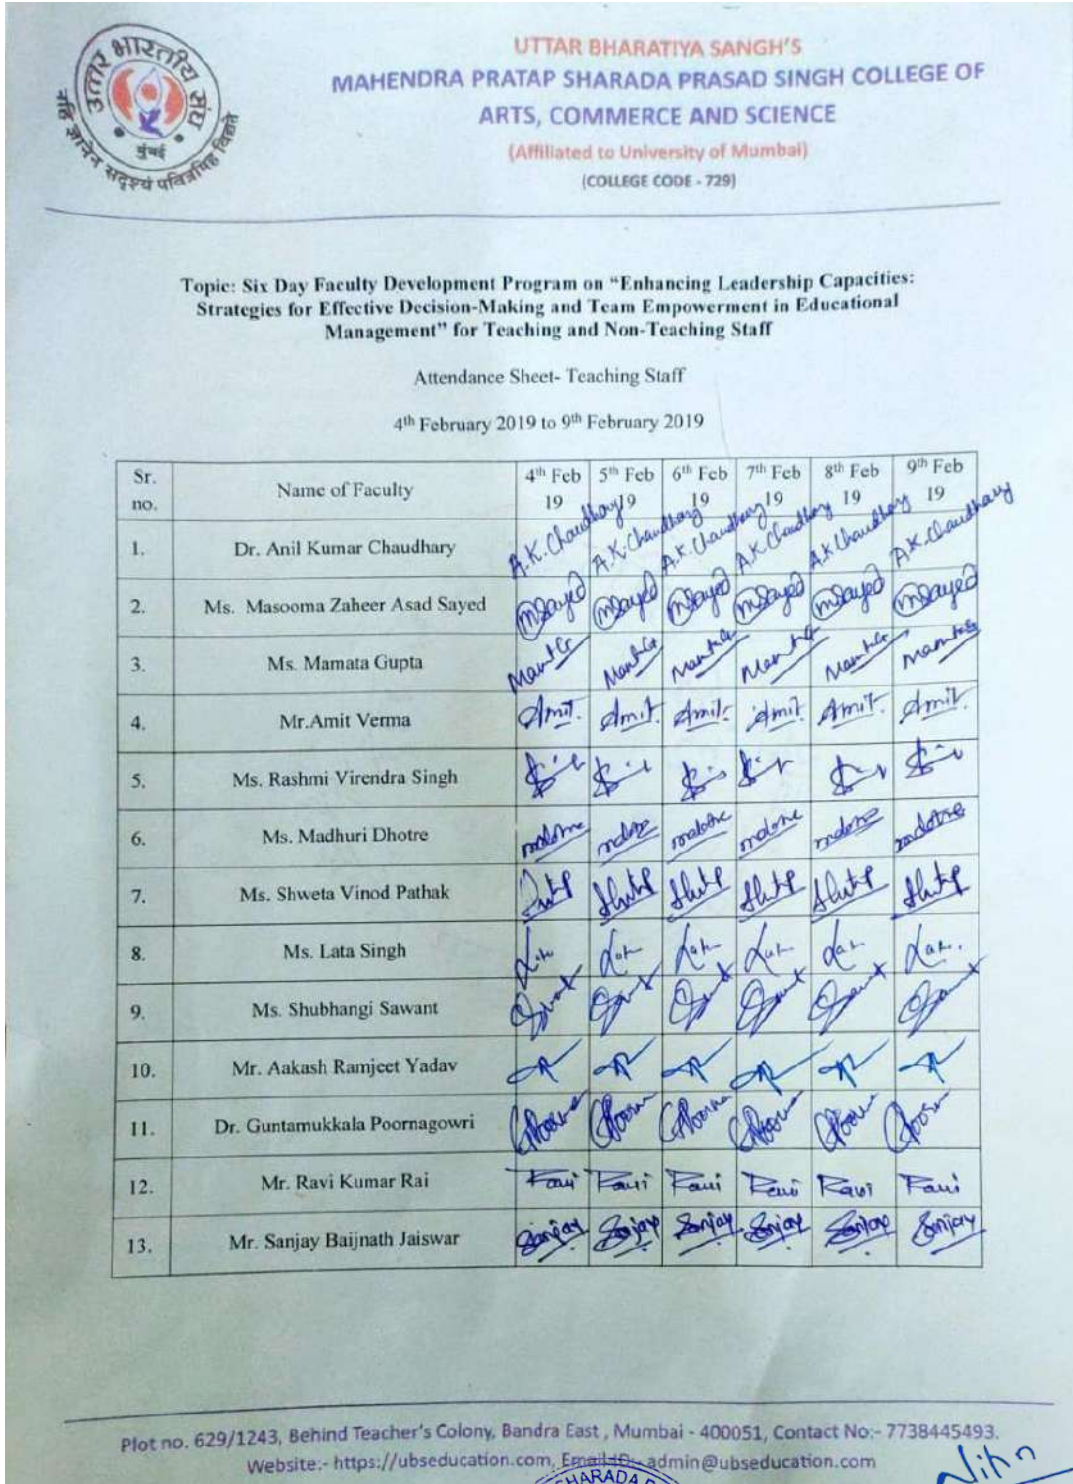 उत्तर भारतीय संघ
मुंबई
नहि ज्ञानेन सदृश्यं पवित्रमिह विद्यते
UTTAR BHARATIYA SANGH'S
MAHENDRA PRATAP SHARADA PRASAD SINGH COLLEGE OF
ARTS, COMMERCE AND SCIENCE
(Affiliated to University of Mumbai)
(COLLEGE CODE - 729)
Topic: Six Day Faculty Development Program on “Enhancing Leadership Capacities:
Strategies for Effective Decision-Making and Team Empowerment in Educational
Management” for Teaching and Non-Teaching Staff
Attendance Sheet- Teaching Staff
4th February 2019 to 9th February 2019
Sr. no. Name of Faculty 4th Feb 19 5th Feb 19 6th Feb 19 7th Feb 19 8th Feb 19 9th Feb 19
1. Dr. Anil Kumar Chaudhary A.K.Chaudhary A.K.Chaudhary A.K.Chaudhary A.K.Chaudhary A.K.Chaudhary A.K.Chaudhary
2. Ms. Masooma Zaheer Asad Sayed mSayed mSayed mSayed mSayed mSayed mSayed
3. Ms. Mamata Gupta
4. Mr.Amit Verma Amit. Amit. Amit. Amit. Amit. Amit.
5. Ms. Rashmi Virendra Singh
6. Ms. Madhuri Dhotre
7. Ms. Shweta Vinod Pathak
8. Ms. Lata Singh
9. Ms. Shubhangi Sawant
10. Mr. Aakash Ramjeet Yadav
11. Dr. Guntamukkala Poornagowri
12. Mr. Ravi Kumar Rai Ravi Ravi Ravi Ravi Ravi Ravi
13. Mr. Sanjay Baijnath Jaiswar Sanjay Sanjay Sanjay Sanjay Sanjay Sanjay
Plot no. 629/1243, Behind Teacher's Colony, Bandra East , Mumbai - 400051, Contact No:- 7738445493.
Website:- https://ubseducation.com, Email ID:- admin@ubseducation.com
SHARADA